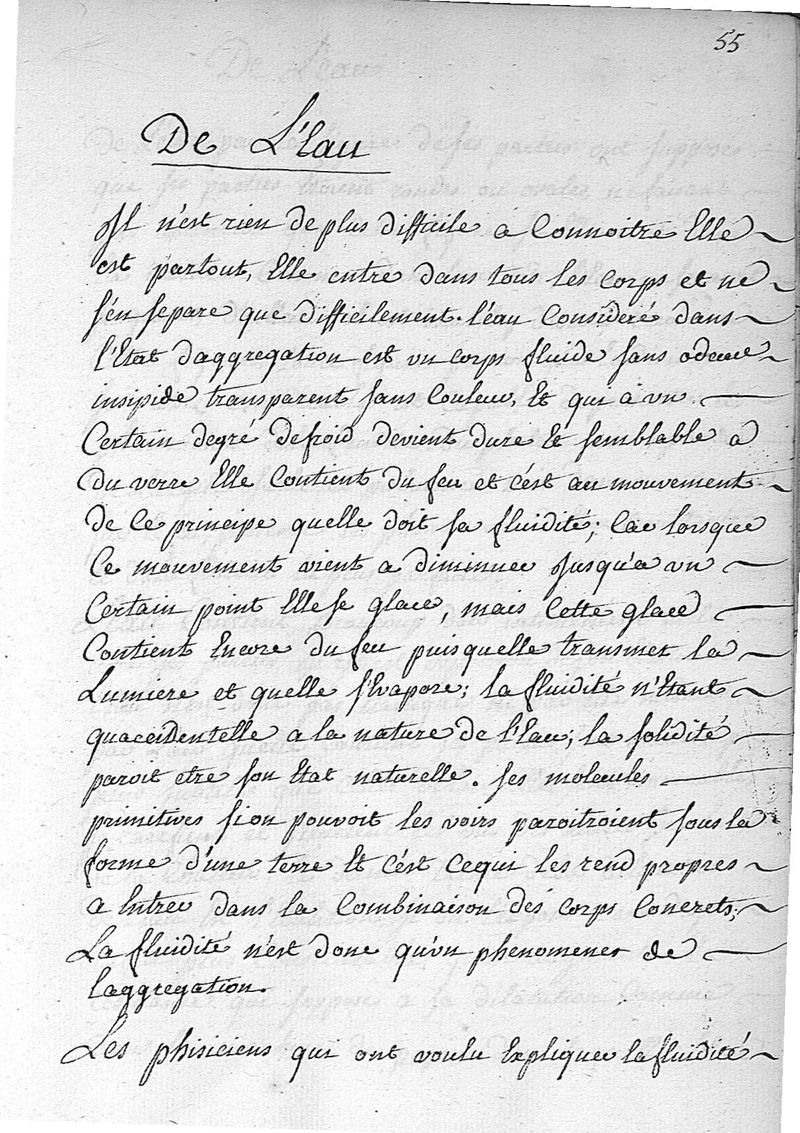 55
De L'Eau
Il n'est rien de plus difficile a Connoitre Elle
est partout, Elle entre dans tous les corps et ne
s'en separe que difficilement. l'eau Consideré dans
l'Etat daggregation est un corps fluide sans odeur
insipide transparent sans Couleur, Et qui à un
Certain degré defroid devient dure Et semblable a
du verre Elle Contient du feu et c'est au mouvement
de Ce principe quelle doit sa fluidité; Car lorsque
Ce mouvement vient a diminuer Jusqu'a un
Certain point Elle se glace, mais Cette glace
Contient Encore du feu puisquelle transmet la
Lumiere et quelle s'Evapore; la fluidité n'Etant
quaccidentelle a la nature de l'Eau; la solidité
paroit etre son Etat naturelle. ses molecules
primitives si on pouvoit les voirs paroitroient sous la
forme d'une terre Et c'est Cequi les rend propres
a Entrer dans la Combinaison des corps Concrets;
La fluidité n'est donc qu'un phenomenes de
laggregation.
Les phisiciens qui ont voulu Expliquer la fluidité